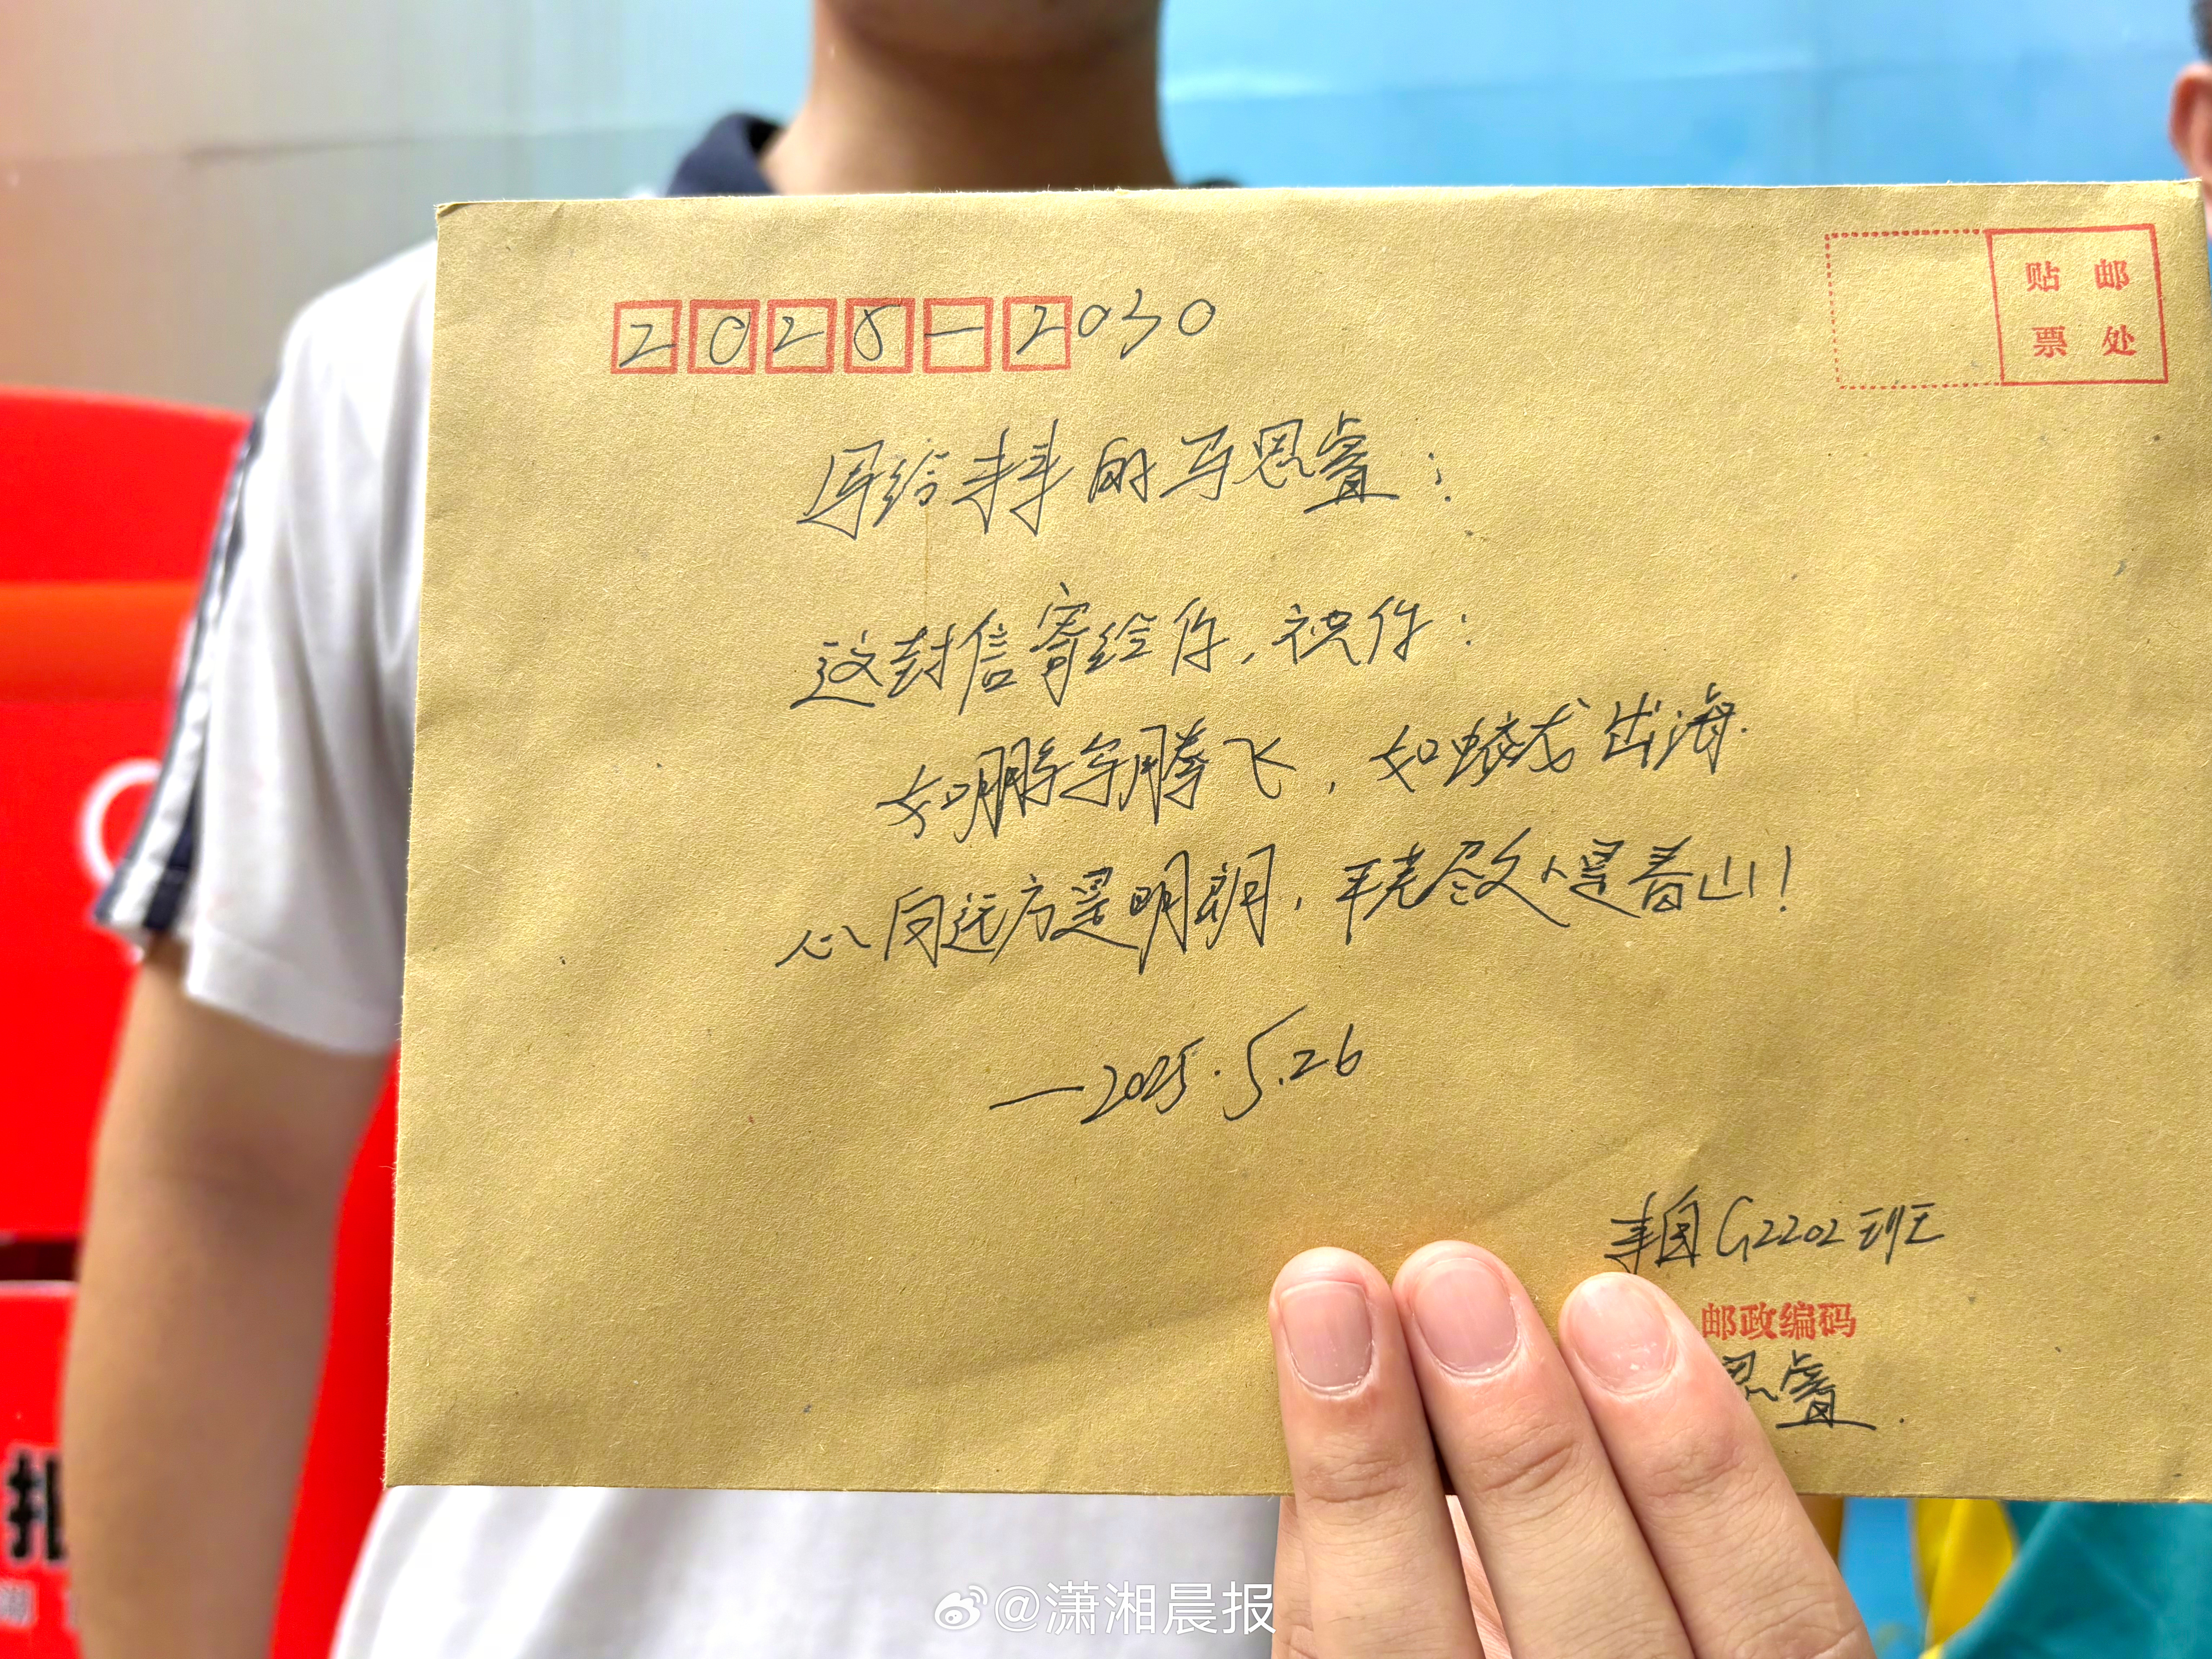 2025-2030
贴邮
票处
写给未来的马思睿:
这封信寄给你,祝你:
如鹏宇腾飞,如蛟龙出海.
心向远方是明朗,平芜尽处是春山!
—2025.5.26
来自G2202班
邮政编码
思睿.
@潇湘晨报